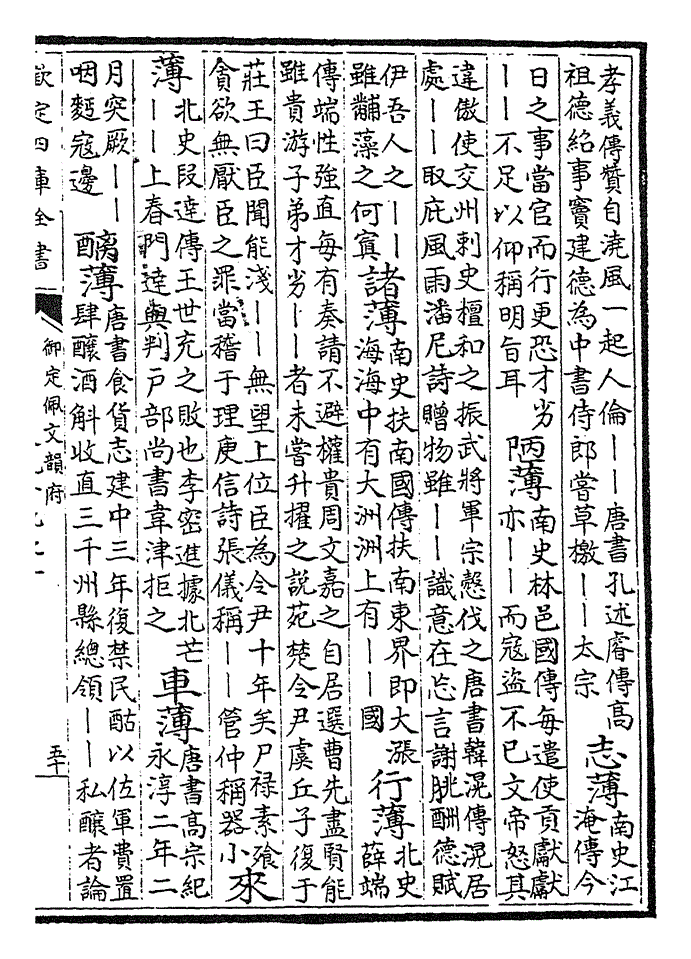 孝義傳贊自澆風一起人倫——唐書孔述睿傳高
祖德紹事竇建德為中書侍郎嘗草檄——太宗
志薄
南史江
淹傳今
日之事當官而行更恐才劣
——不足以仰稱明旨耳
陋薄
南史林邑國傳每遣使貢獻獻
亦——而寇盜不已文帝怒其
違傲使交州刺史檀和之振武將軍宗愨伐之唐書韓滉傳滉居
處——取庇風雨潘尼詩贈物雖——識意在忘言謝朓酬德賦
伊吾人之——
雖黼藻之何寘
諸薄
南史扶南國傳扶南東界即大漲
海海中有大洲洲上有——國
行薄
北史
薛端
傳端性強直每有奏請不避權貴周文嘉之自居選曹先盡賢能
雖貴游子弟才劣——者未嘗升擢之說苑楚令尹虞丘子復于
莊王曰臣聞能淺——無望上位臣為令尹十年矣尸祿素飱
貪欲無厭臣之罪當稽于理庾信詩張儀稱——管仲稱器小
來
薄
北史段達傳王世充之敗也李密進據北芒
——上春門達與判戶部尚書韋津拒之
車薄
唐書高宗紀
永淳二年二
月突厥——
咽麪寇邊
醨薄
唐書食貨志建中三年復禁民酤以佐軍費置
肆釀酒斛收直三千州縣總領——私釀者論
欽定四庫全書
御定佩文韻府
五十